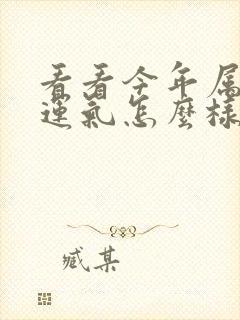 看看今年属
运氣怎麼樣
臧某